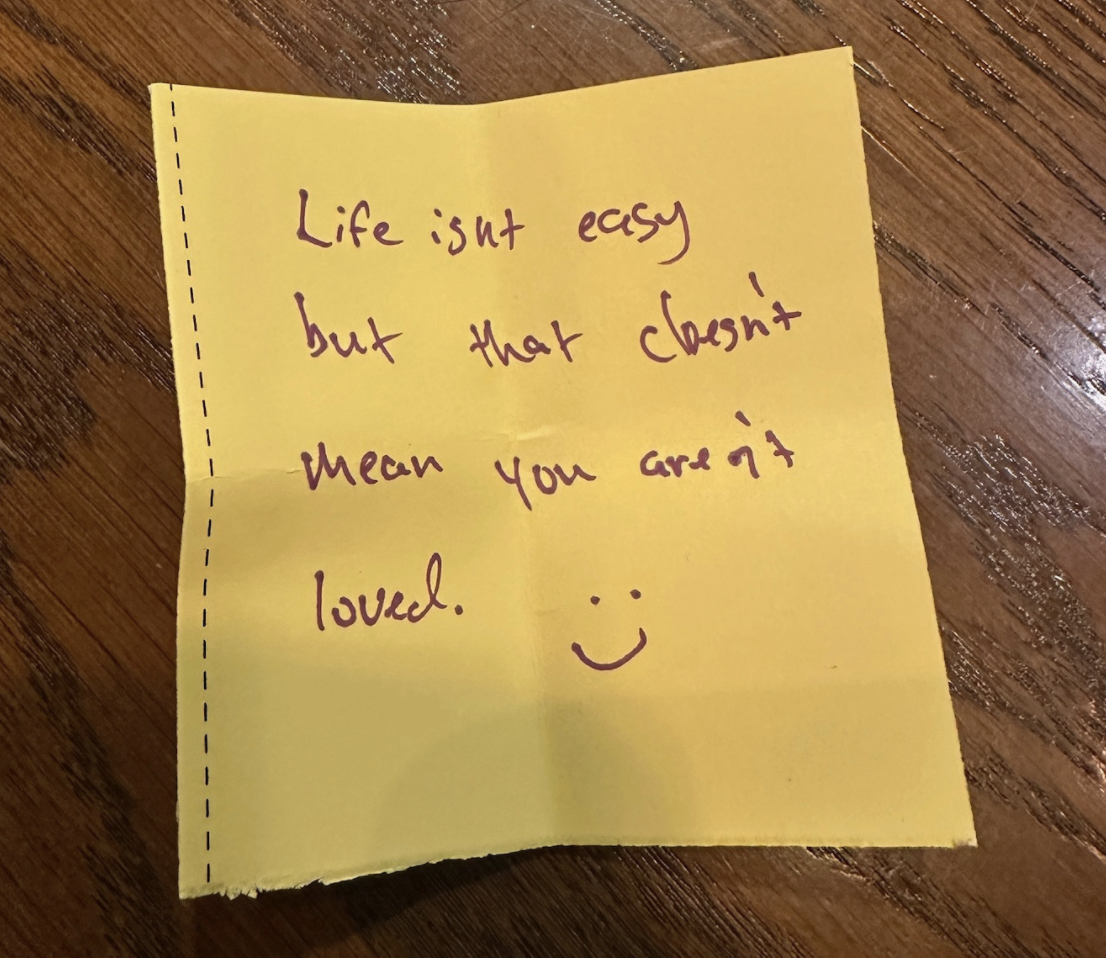 Life isnt easy
but that doesn't
mean you aren't
loved.